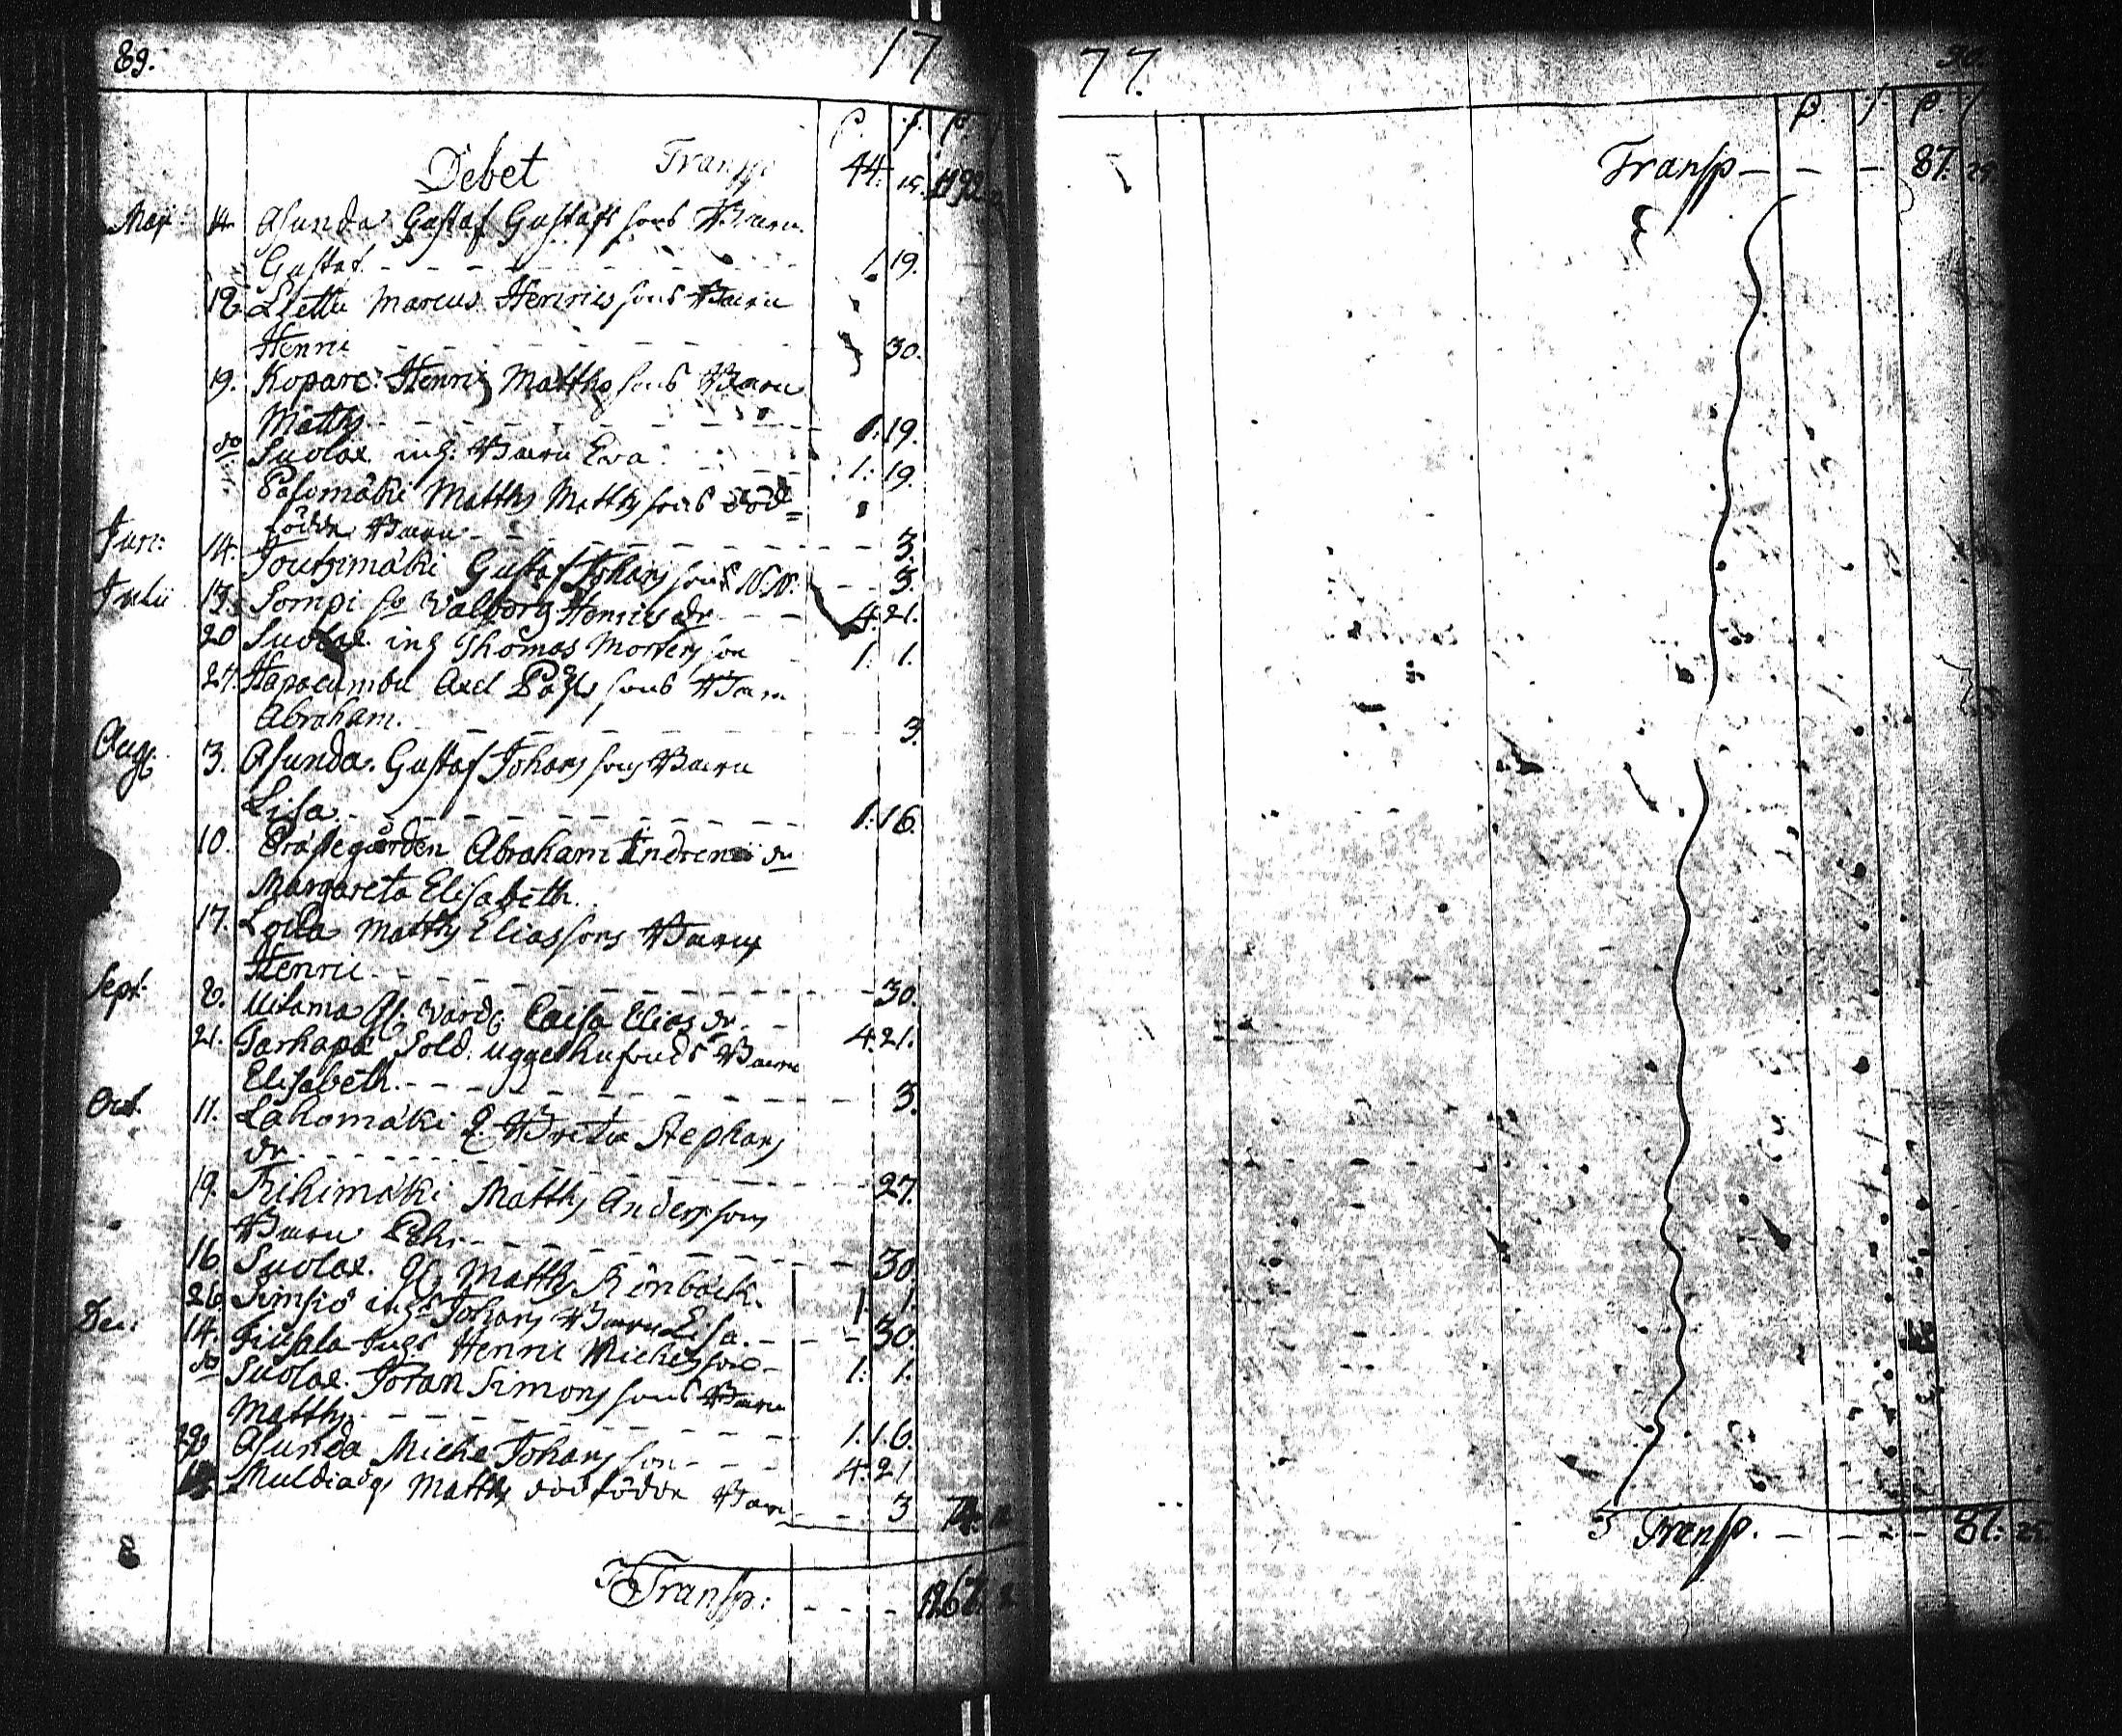 89. 17
Debet Transp: 44. 15. 1192
Maji 14. Asunda Gustaf Gustafs sons Barn
Gustaf 1. 19.
12 Marcus Henrics sons Barn
Henric 30.
19. Kopare Henric Matths sons Barn
Matths 1. 19.
do Suolax inh: Barn Eva 1: 19.
Palomäki Matths Matths sons död=
födde Barn 3.
Juni: 14. Joutzimäki Gustaf Johans sons N.N. 3.
Julii 13. Sompi Valborg Henrics dr 4. 21.
20 Suolax inh Thomas Mortens son 1. 1.
27. Axel sons Barn
Abraham. 3.
Aug: 3. Asunda. Gustaf Johans sons Barn
Lisa 1: 16.
10. Prästegården Abraham dr
Margareta Elisabeth.
17. Loila Matths Eliassons Barn
Henric 30.
Sept: Uitama Caisa Elias dr 4. 21.
21. Tarhapä Sold. Barn
Elisabeth. 3.
Oct. 11. Lahomäki Brita Stephans
dr 27.
19. Rihimäki Matths Anders sons
Barn Pehr 30
16. Suolax. Matths Rönbäck. 1. 1.
26 Simsiö inh Johans Barn Lisa. 30.
Dec: 14. Henric Michels son 1: 1.
do Suolax. Jöran Simons sons Barn
Matths 1. 16.
Asunda Michel Johans son 4. 21
Matths dödfödde Barn 3
Transp: 1267.
77.
Transp 87. 25.
Transp. 87. 25